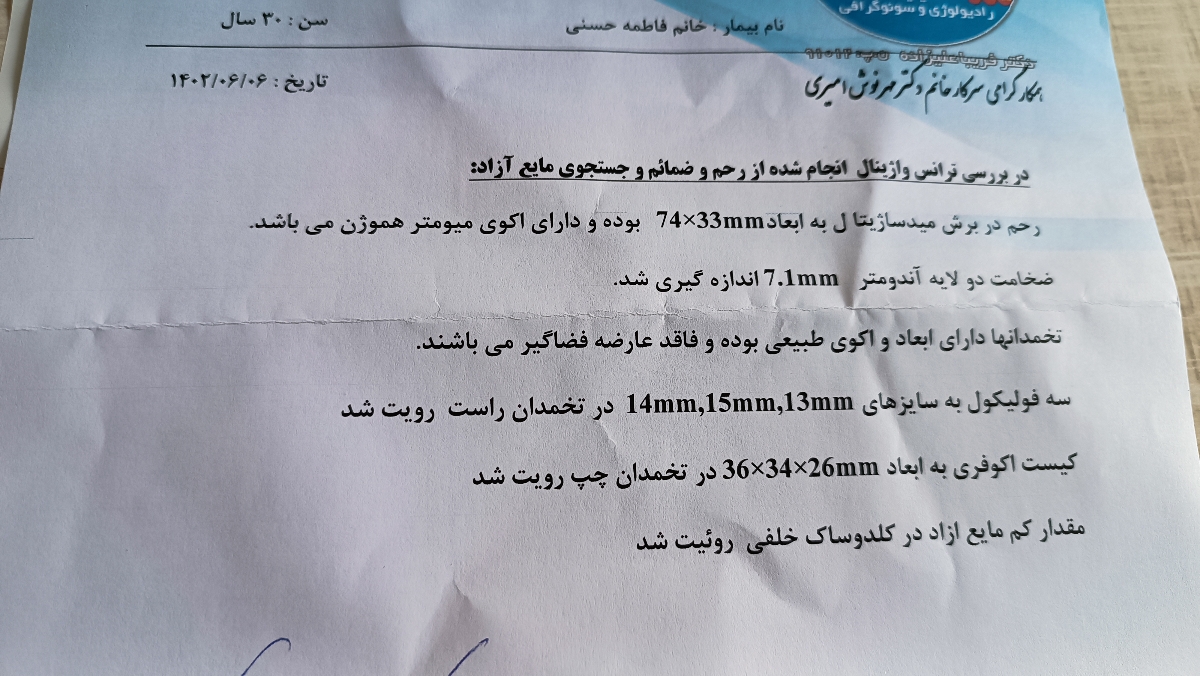 رادیولوژی و سونوگرافی
دکتر فریبا علیزاده ن.پ: ۹۱۰۱۴
نام بیمار : خانم فاطمه حسنی
سن : ۳۰ سال
همکار گرامی سرکار خانم دکتر مهرنوش امیری
تاریخ : ۱۴۰۲/۰۶/۰۶
در بررسی ترانس واژینال انجام شده از رحم و ضمائم و جستجوی مایع آزاد:
رحم در برش میدساژیتا ل به ابعاد 74×33mm بوده و دارای اکوی میومتر هموژن می باشد.
ضخامت دو لایه آندومتر 7.1mm اندازه گیری شد.
تخمدانها دارای ابعاد و اکوی طبیعی بوده و فاقد عارضه فضاگیر می باشند.
سه فولیکول به سایزهای 14mm,15mm,13mm در تخمدان راست رویت شد
کیست اکوفری به ابعاد 36×34×26mm در تخمدان چپ رویت شد
مقدار کم مایع ازاد در کلدوساک خلفی روئیت شد